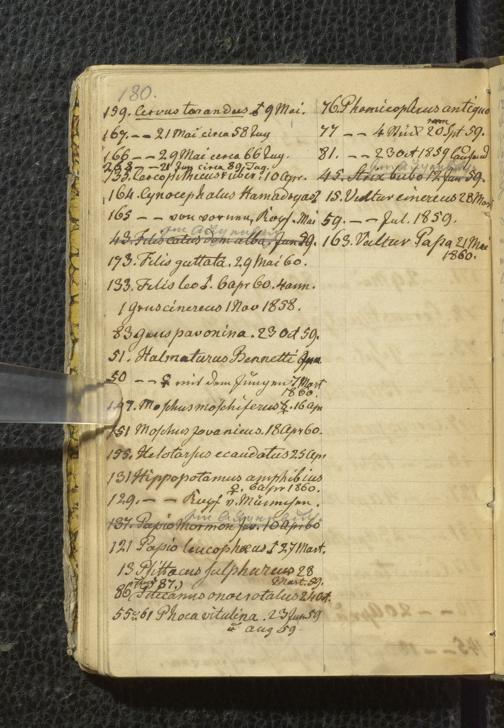 180.
159. Cervus tarandus ♂ 9 Mai.
167. – – 21 Mai circa 58 Zug
166 – – 29 Mai circa 66 Zug.
Cercopithecus ruber. 10 Apr.
164. Cynocephalus Hamadryas
165 – – von vorn, Kopf. Mai
43. Felis catus dom. alba, Jun 59.
173. Felis guttata. 29 Mai 60.
133. Felis leo ♂. 6 Apr 60. 4 ann.
1 Grus cinereus 1 Nov 1858.
83 Grus pavonina. 23 Oct 59.
51. Halmaturus Bennetti
50 – – ♀ mit dem Jungen 7 Mart
1860.
147. Moschus moschiferus ♀. 16 Apr
151 Moschus javanicus. 18 Apr 60.
155. Helotarsus ecaudatus 25 Apr
131 Hippopotamus amphibius
♀. 6 Apr 1860.
129. – – Kopf
137. Papio Mormon jav. 10 Apr 60
121 Papio leucophaeus ♂ 27 Mart.
13 Psittacus sulphureus 28
Mart. 59.
86. Pelecanus onocrotalus 24 Oct.
55 61 Phoca vitulina. 23 Jun 59
u Aug 59
76. Phoenicopterus antiquo
77 – – 4 20 Spt. 59.
81. – – 23 Oct 1859 laufend
45. Strix bubo. 12 Jun 59.
15. Vultur cinereus 28 Mart
59. – – Jul. 1859.
163. Vultur Papa 21 Mai
1860.